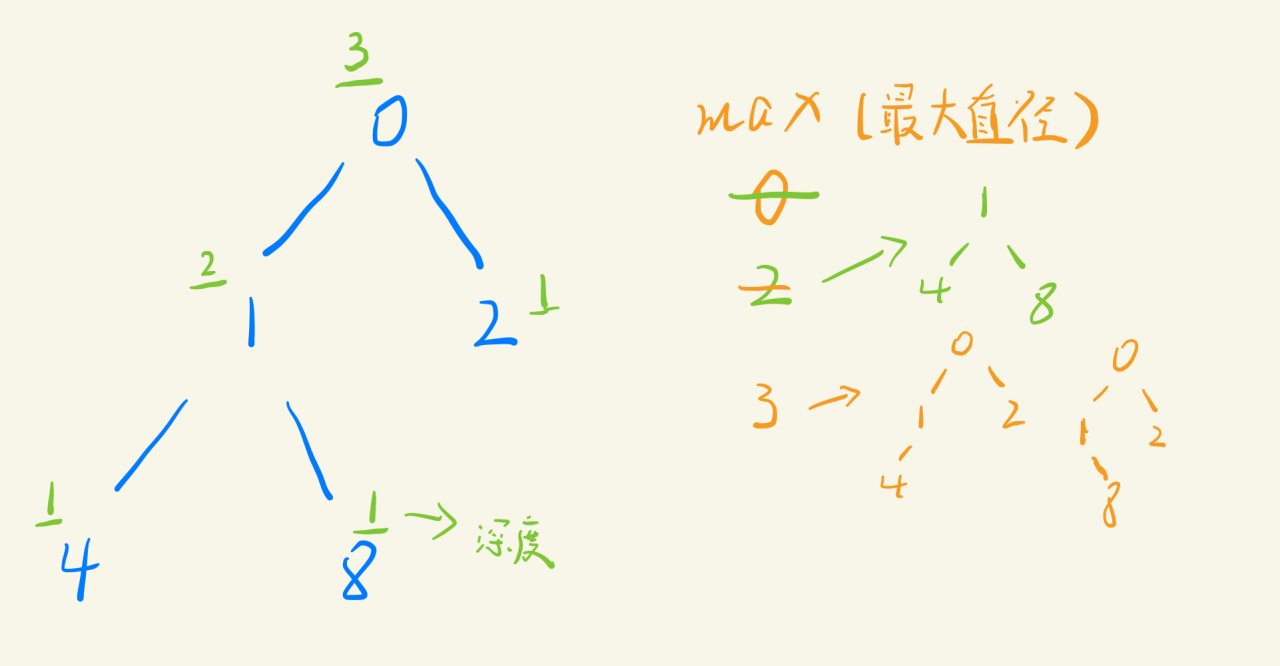 3
0
2
1
2 1
1
4
1 → 深度
8
max (最大直径)
0
2 →
1
4 8
3 →
0
1 2
4
0
1 2
8